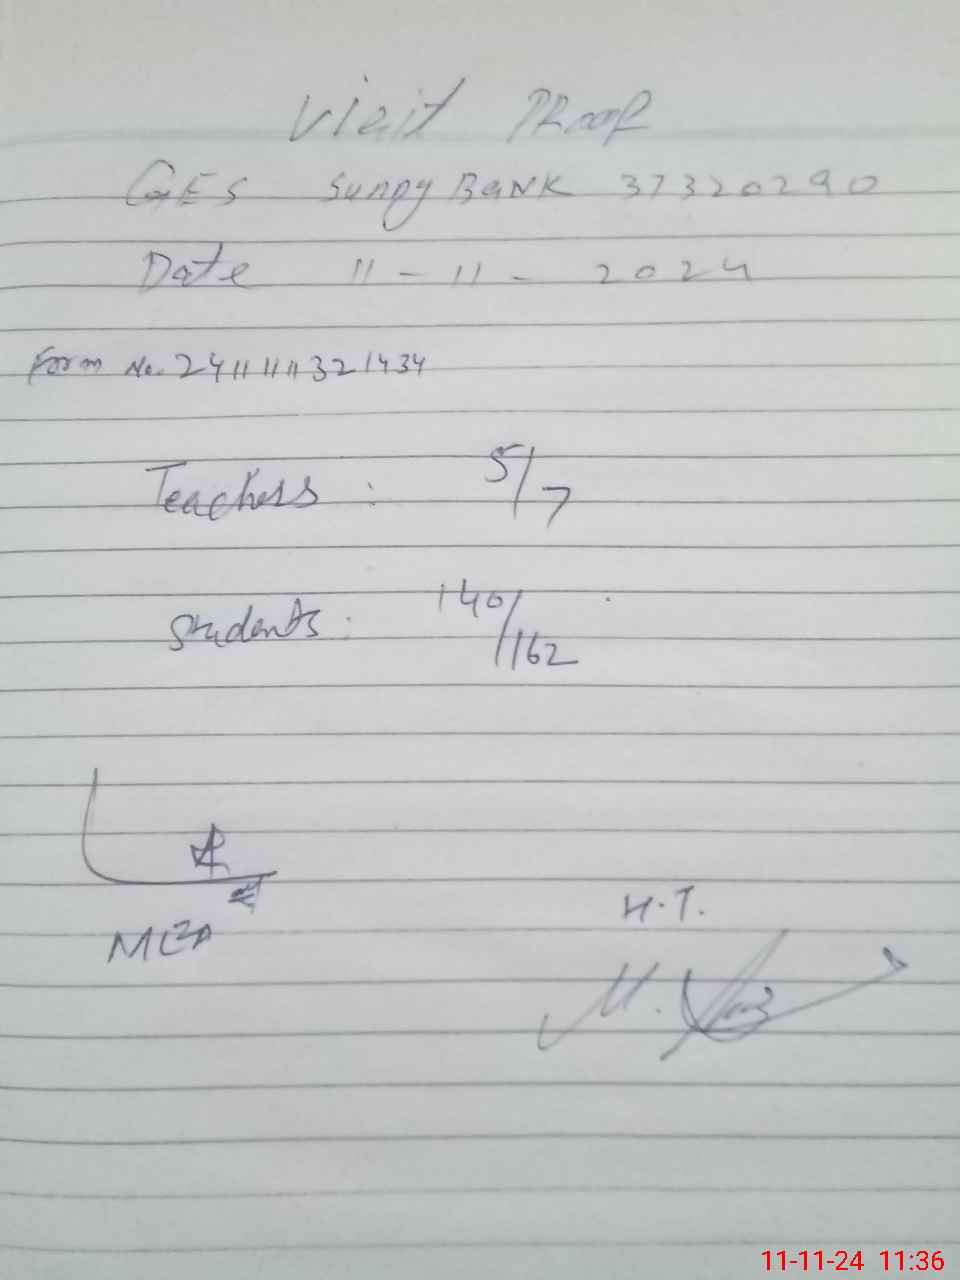 Visit PRoof
GES Sunny BANK 37320290
Date 11 - 11 - 2024
Form No. 24111111321434
Teachers : 5/7
Students : 140/162
MEA
H.T.
11-11-24 11:36